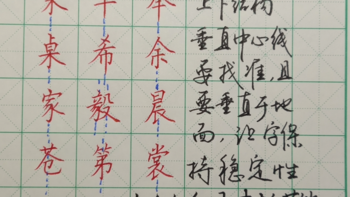 上下结构
桌希余 垂直中心线
要找准,且
家毅晨 要垂直于地
面,让字保
苍第裳 持稳定性